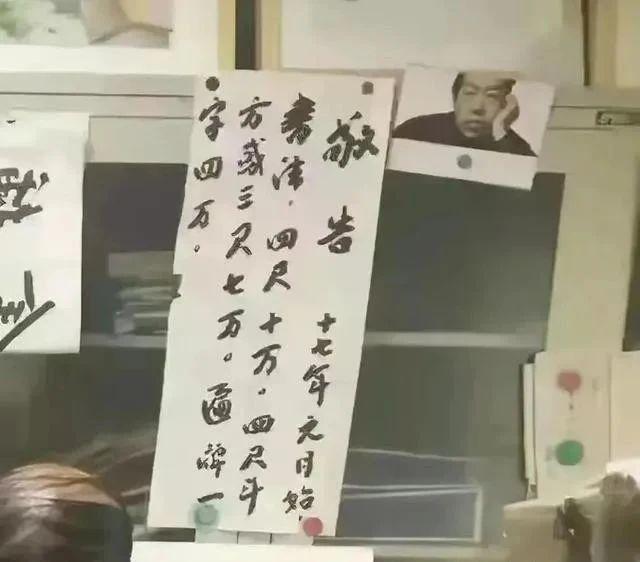 敬告 十七年元月始
书法，四尺十万。四尺斗
方或三尺七万。匾牌一
字四万。